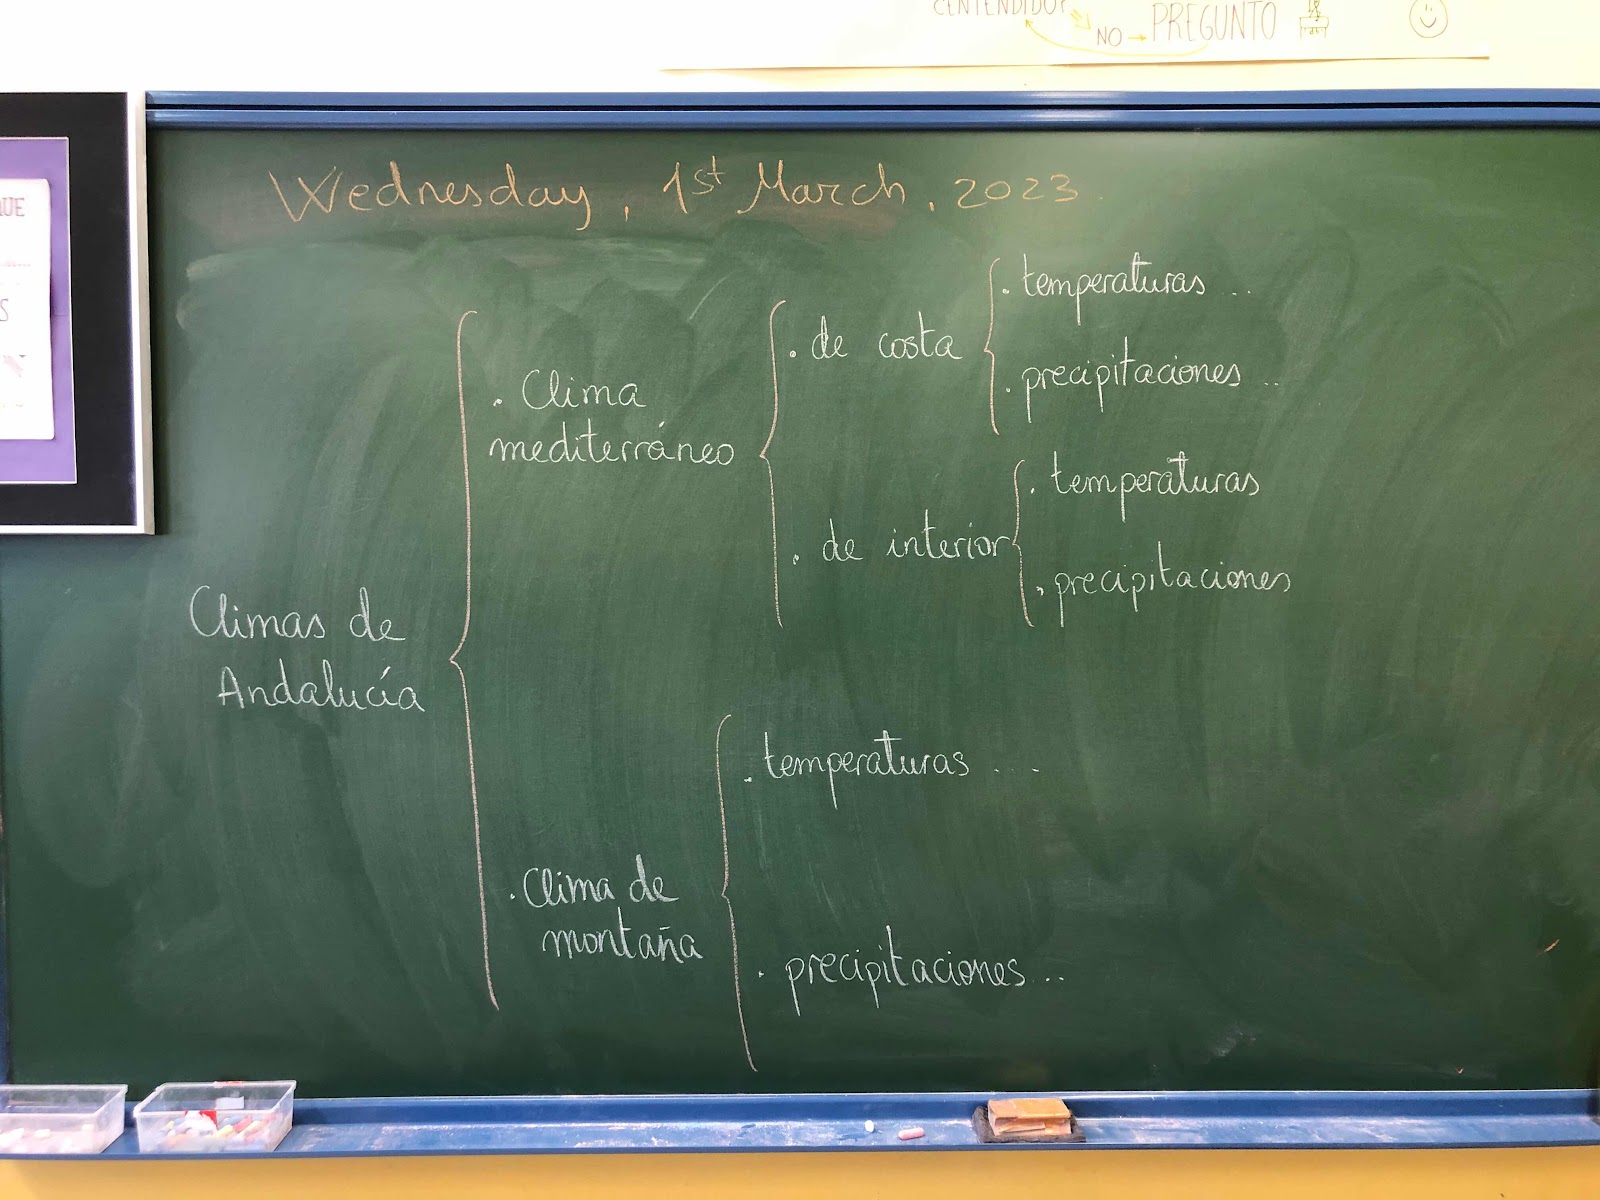 NO → PREGUNTO
QUE
S
Wednesday, 1st March, 2023.
. temperaturas ...
. de costa
. precipitaciones ..
. Clima
mediterráneo
. temperaturas
. de interior
. precipitaciones
Climas de
Andalucía
. temperaturas ...
. Clima de
montaña
. precipitaciones ...